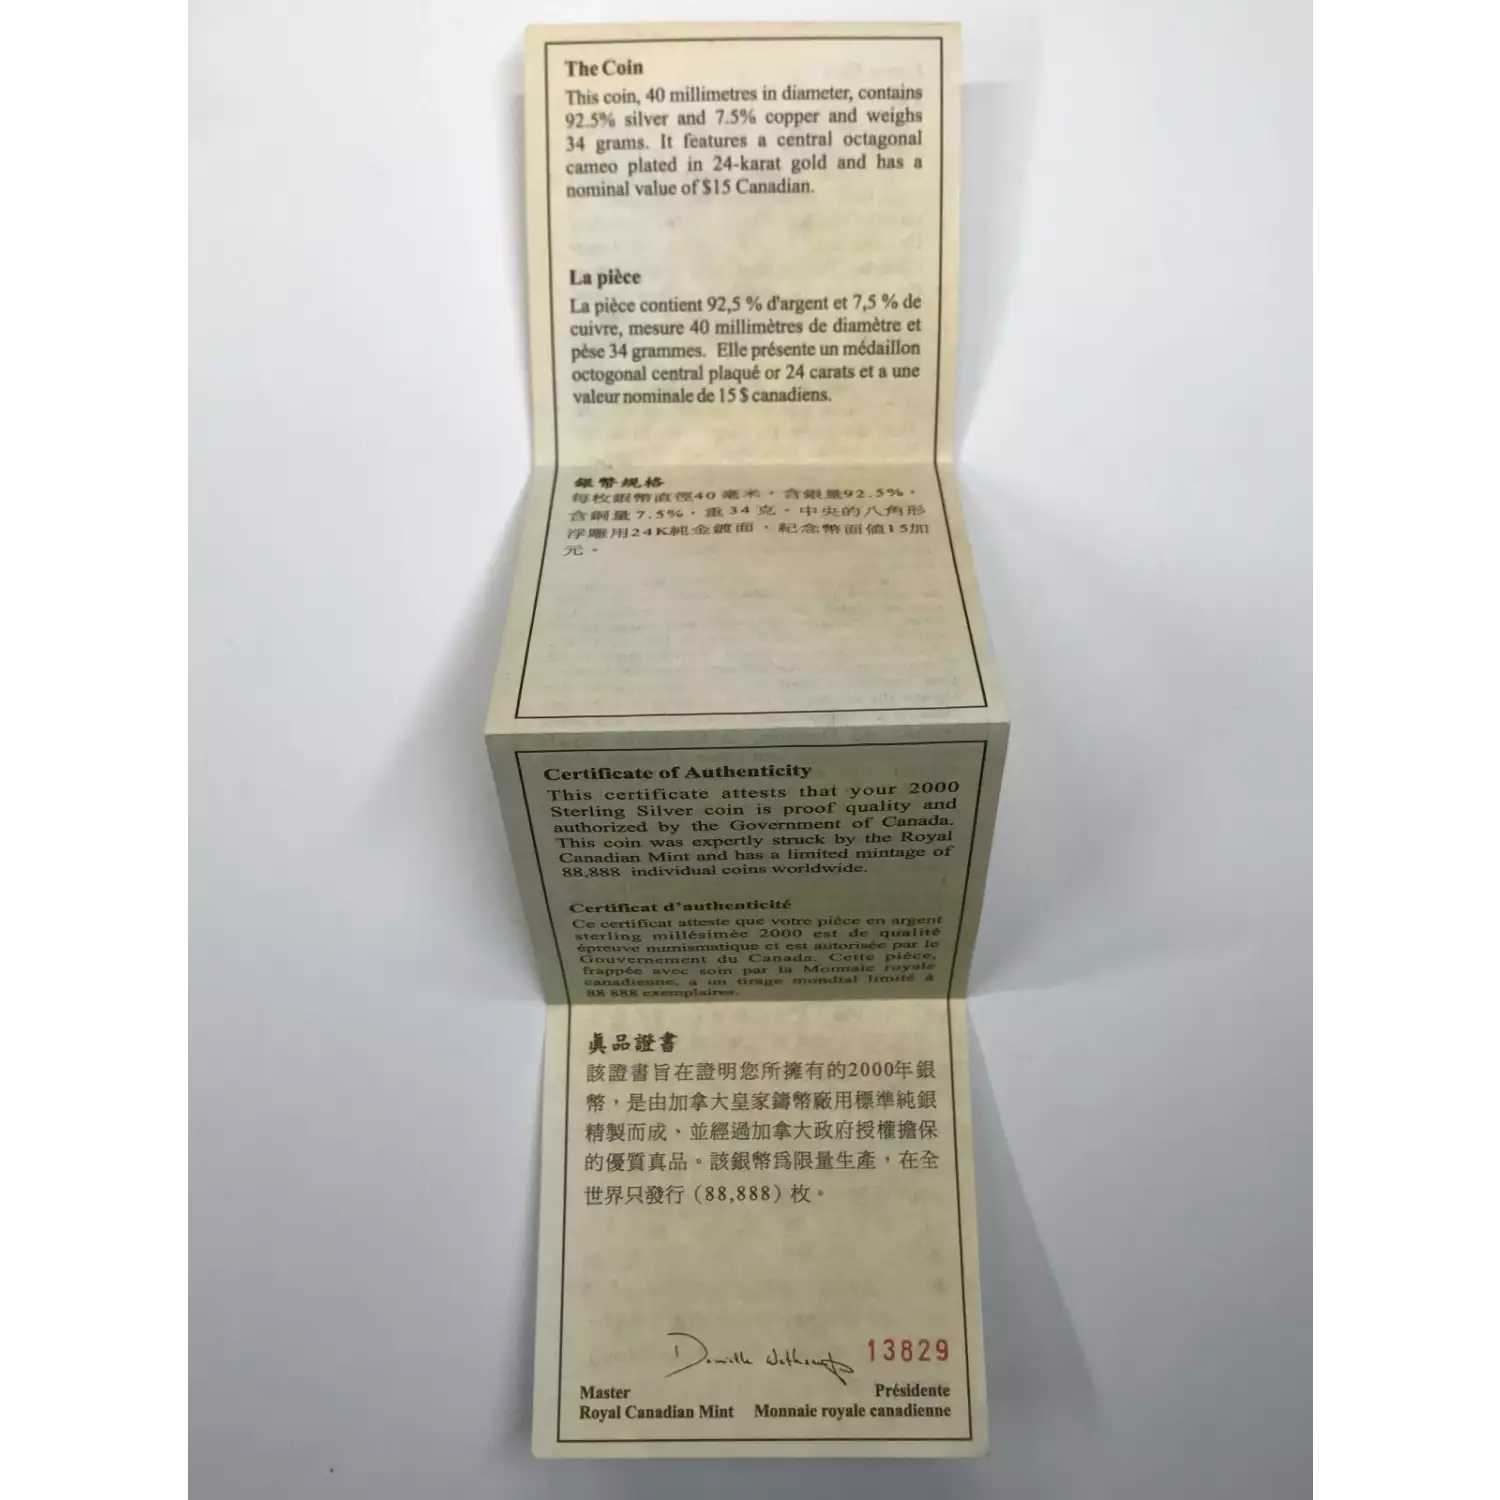 The Coin
This coin, 40 millimetres in diameter, contains
92.5% silver and 7.5% copper and weighs
34 grams. It features a central octagonal
cameo plated in 24-karat gold and has a
nominal value of $15 Canadian.
La pièce
La pièce contient 92,5 % d'argent et 7,5 % de
cuivre, mesure 40 millimètres de diamètre et
pèse 34 grammes. Elle présente un médaillon
octogonal central plaqué or 24 carats et a une
valeur nominale de 15 $ canadiens.
銀幣規格
每枚銀幣直徑40 毫米，含銀量92.5%，
含銅量7.5%，重34克。中央的八角形
浮雕用24K純金鍍面，紀念幣面值15加
元。
Certificate of Authenticity
This certificate attests that your 2000
Sterling Silver coin is proof quality and
authorized by the Government of Canada.
This coin was expertly struck by the Royal
Canadian Mint and has a limited mintage of
88,888 individual coins worldwide.
Certificat d'authenticité
Ce certificat atteste que votre pièce en argent
sterling millésimée 2000 est de qualité
épreuve numismatique et est autorisée par le
Gouvernement du Canada. Cette pièce,
frappée avec soin par la Monnaie royale
canadienne, a un tirage mondial limité à
88 888 exemplaires.
眞品證書
該證書旨在證明您所擁有的2000年銀
幣，是由加拿大皇家鑄幣廠用標準純銀
精製而成、並經過加拿大政府授權擔保
的優質真品。該銀幣爲限量生產，在全
世界只發行（88,888）枚。
13829
Master Présidente
Royal Canadian Mint Monnaie royale canadienne